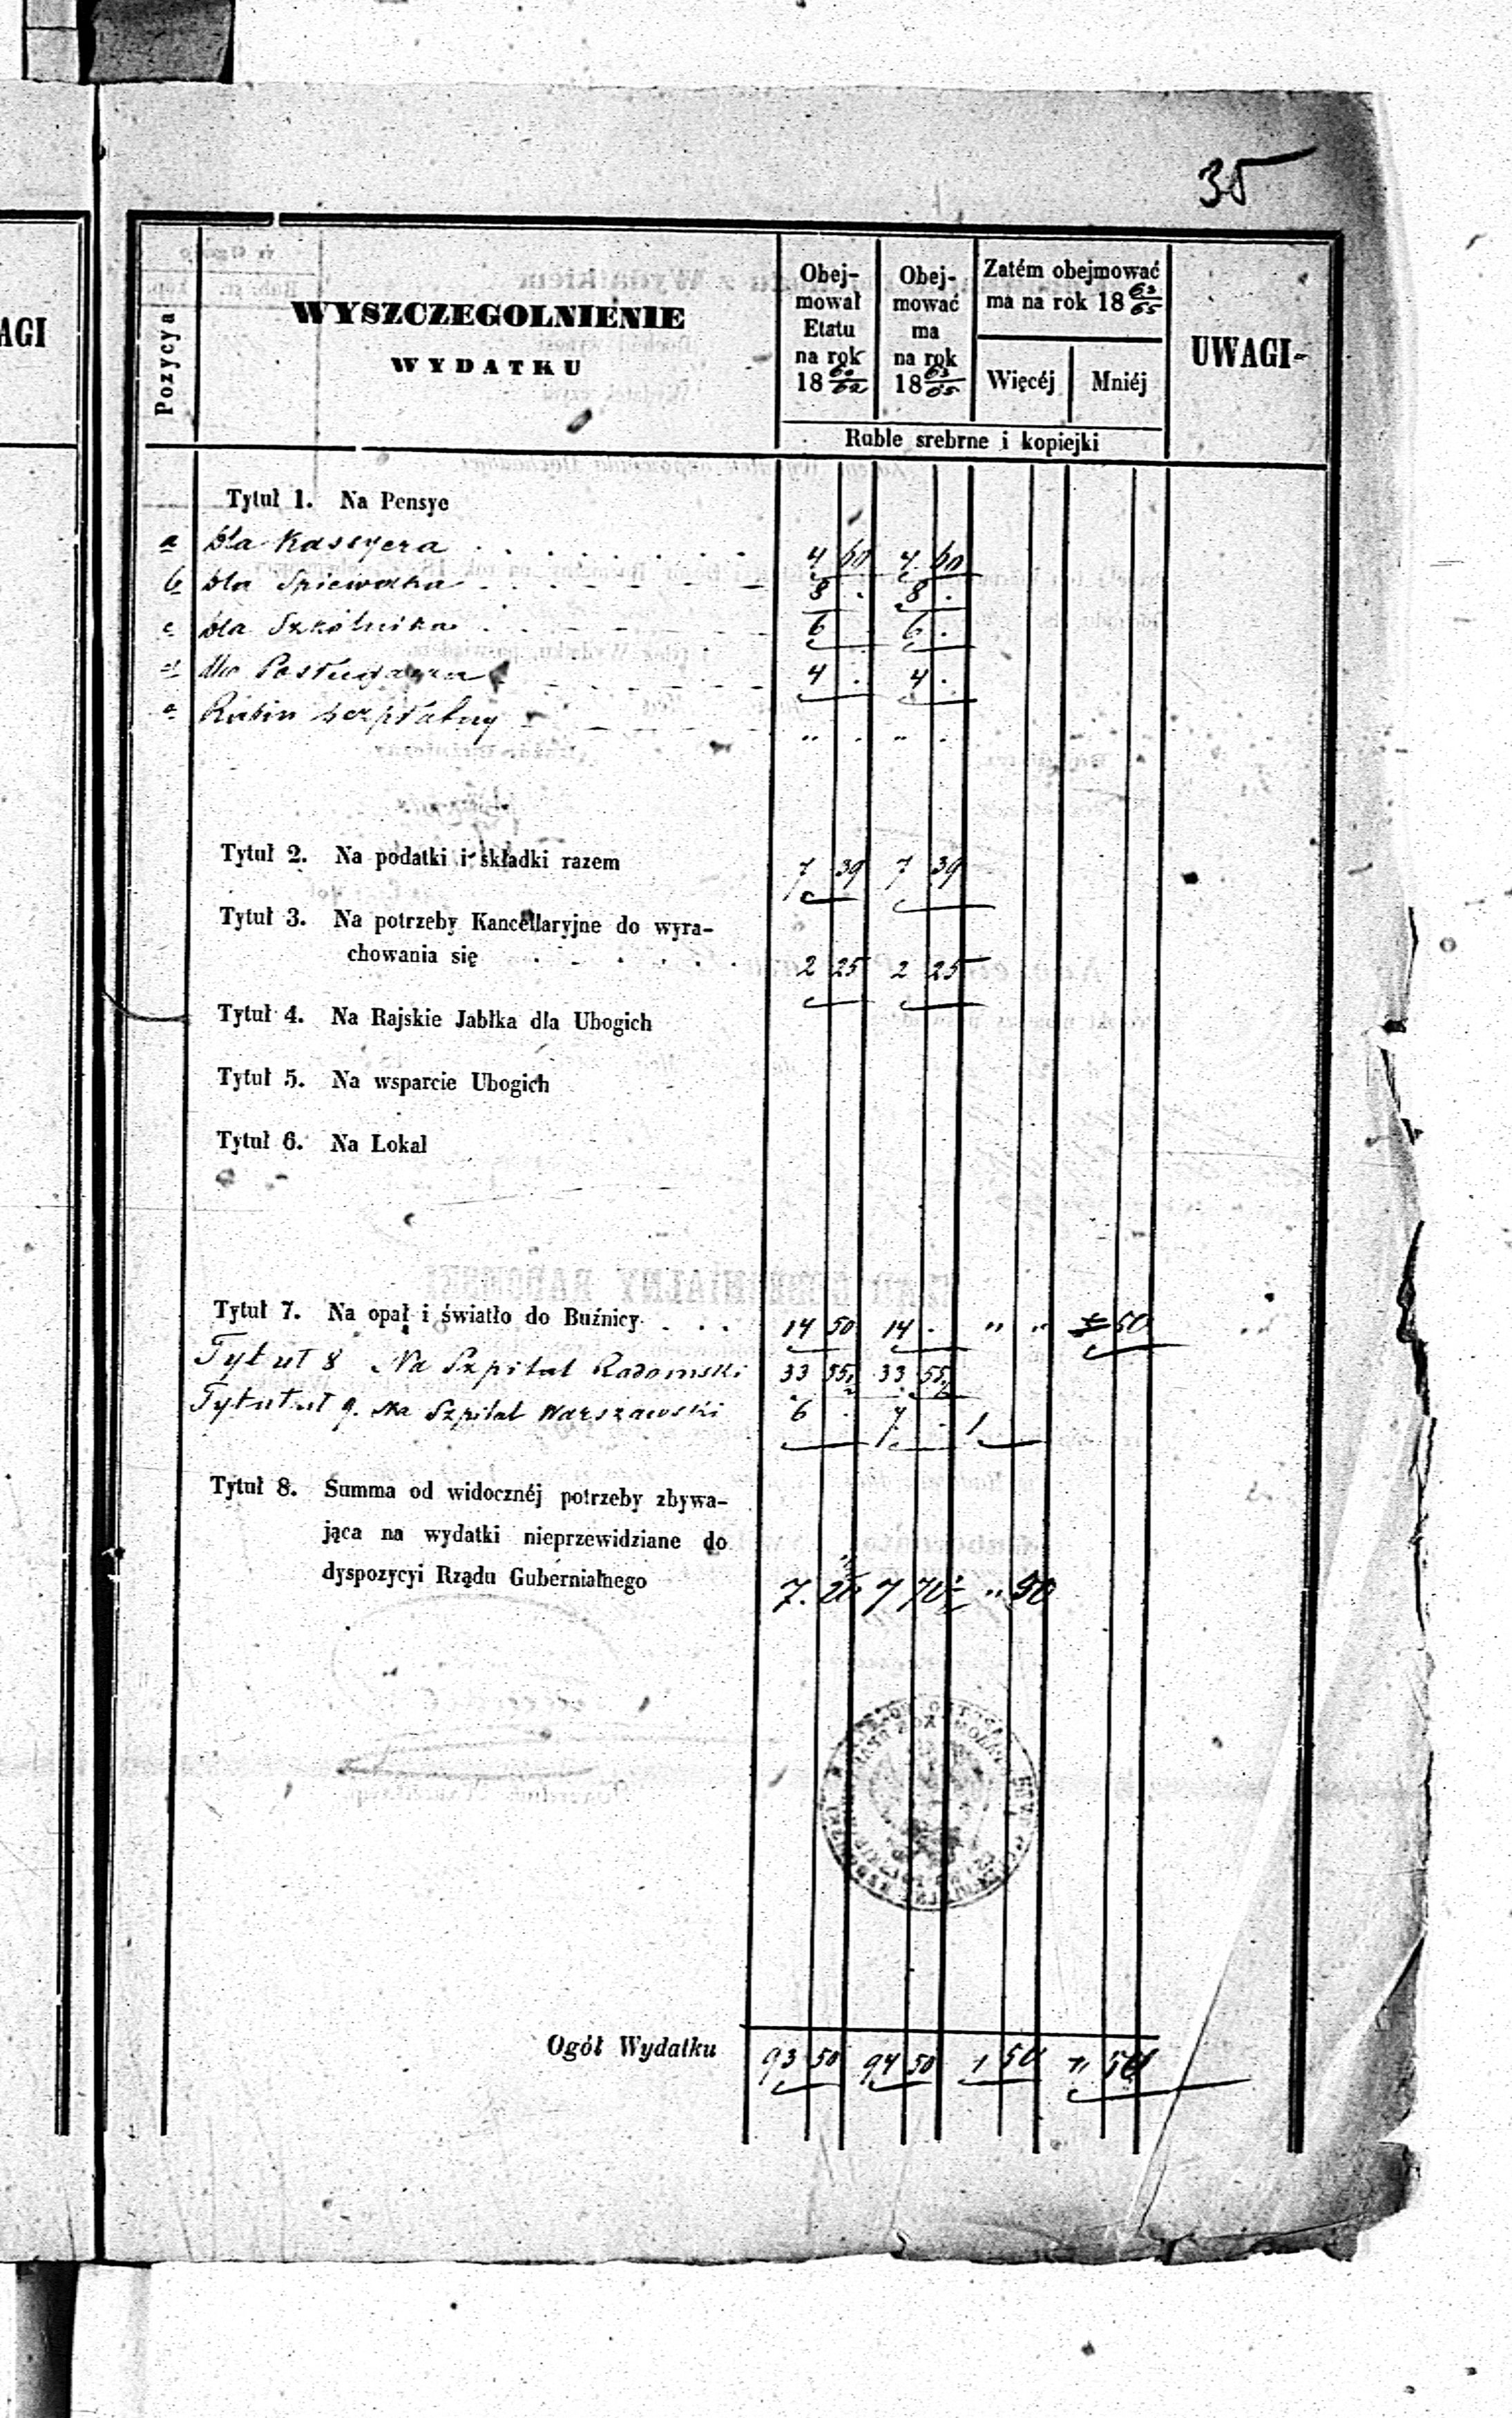 35
AGI
Pozycya
WYSZCZEGOLNIENIE
WYDATKU
Obej-
mował
Etatu
na rok
18 60/62
Obej-
mować
ma
na rok
18 63/65
Zatém obejmować
ma na rok 18 63/65
Więcéj Mniéj
UWAGI
Ruble srebrne i kopiejki
Tytuł 1. Na Pensye
a dla Kassyera . . . . . . . 4 60 4 60
b dla Spiewaka 8 . 8 .
c dla Szkólnika 6 6 .
d dla Posługacza 4 . 4 .
e Rabin bezpłatny „ . „ .
Tytuł 2. Na podatki i składki razem 7 39 7 39
Tytuł 3. Na potrzeby Kancellaryjne do wyra-
chowania się . . . . . . 2 25 2 25
Tytuł 4. Na Rajskie Jabłka dla Ubogich
Tytuł 5. Na wsparcie Ubogich
Tytuł 6. Na Lokal
Tytuł 7. Na opał i światło do Buźnicy . . . 14 50 14 . „ „ 50
Tytuł 8 Na Szpital Radomski 33 55½ 33 55½
Tytułuł 9. Na Szpital Warszawski 6 . 7 . 1
Tytuł 8. Summa od widocznéj potrzeby zbywa-
jąca na wydatki nieprzewidziane do
dyspozycyi Rządu Gubernialnego 7. 20 7 70½ „ 50
Ogół Wydatku 93 50 94 50 1 50 „ 50